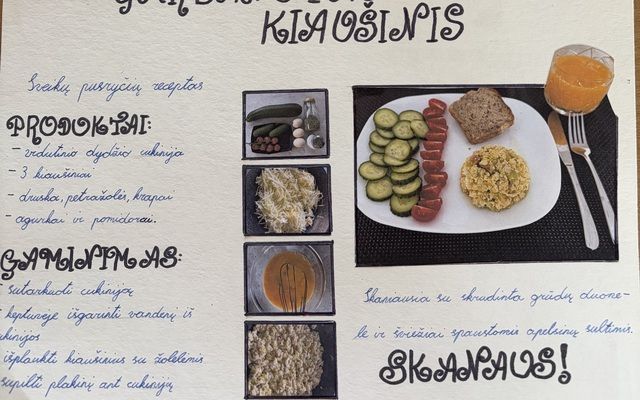 KIAUŠINIS
Sveikų pusryčių receptas
PRODUKTAI:
- vidutinio dydžio cukinija
- 3 kiaušiniai
- druska, petražolės, krapai
- agurkai ir pomidorai.
GAMINIMAS:
- sutarkuoti cukiniją
- keptuvėje išgarinti vandenį iš
cukinijos
išplakti kiaušinius su žolelėmis
supilti plakinį ant cukinijų
Skaniausia su skrudinta grūdų duone-
le ir šviežiai spaustomis apelsinų sultimis.
SKANAUS!